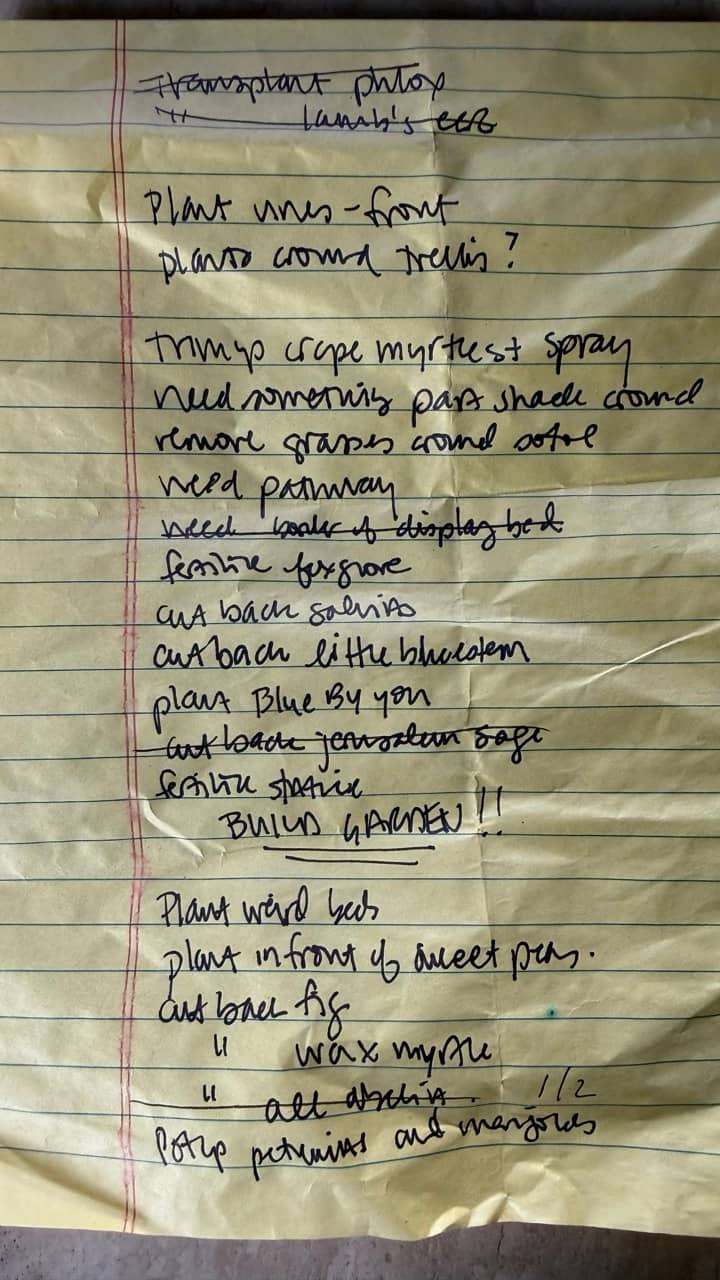 Transplant phlox
" lamb's ear
Plant vines - front
plants around trellis?
Trimyp crape myrtles + spray
need something part shade around
remove grasses around sotol
need pathway
need border of display bed
fertilize foxglove
cut back salvias
cut back little bluestem
plant Blue By you
cut back jerusalem sage
fertilize statice
BUILD GARDEN!!
Plant weird beds
plant in front of sweet peas.
cut back fig
" wax myrtle
" all abelia. 1/2
Pot up petunias and marigolds